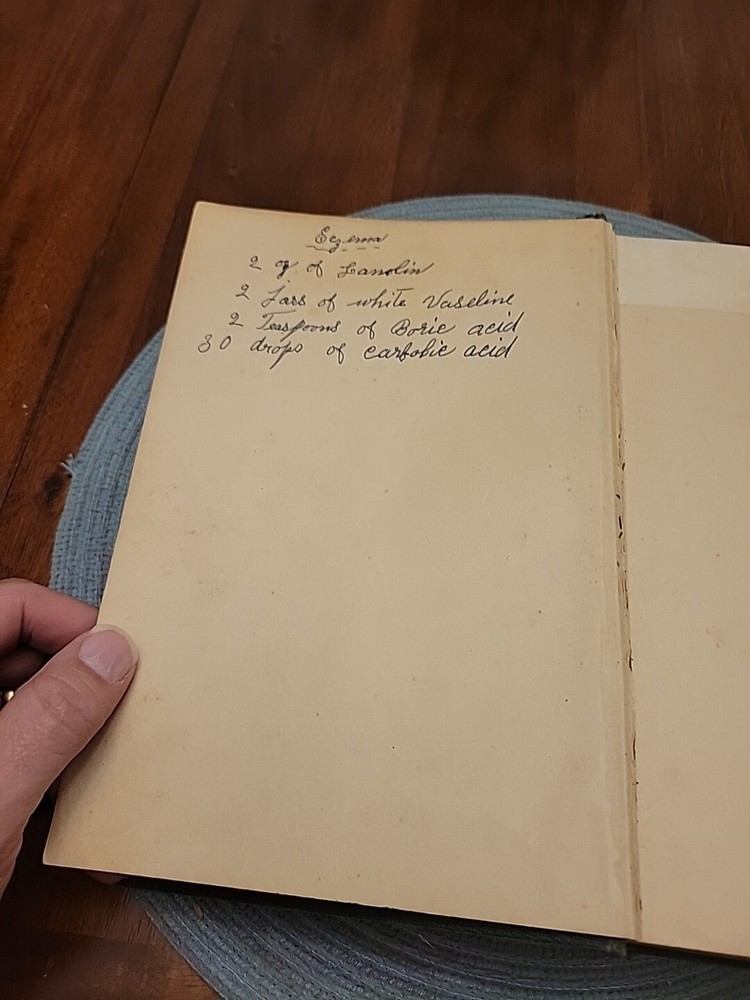 Eczema
2 oz. of Lanolin
2 Jars of white Vaseline
2 Teaspoons of Boric acid
30 drops of carbolic acid